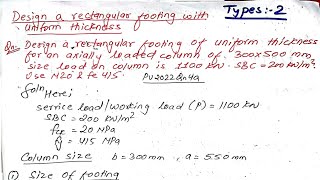 Types:-2
Design a rectangular footing with
uniform thickness
Qn: Design a rectangular footing of uniform thickness
for an axially loaded column of 300x500 mm
size load on column is 1100 kN. SBC = 200 kN/m²
Use M20 & fe 415
PU2022Qn4a
Soln
Here;
service load/working load (P) = 1100 kN
SBC = 200 kN/m²
fck = 20 NPa
fy = 415 MPa
Column size b = 300mm, a = 550mm
① Size of footing